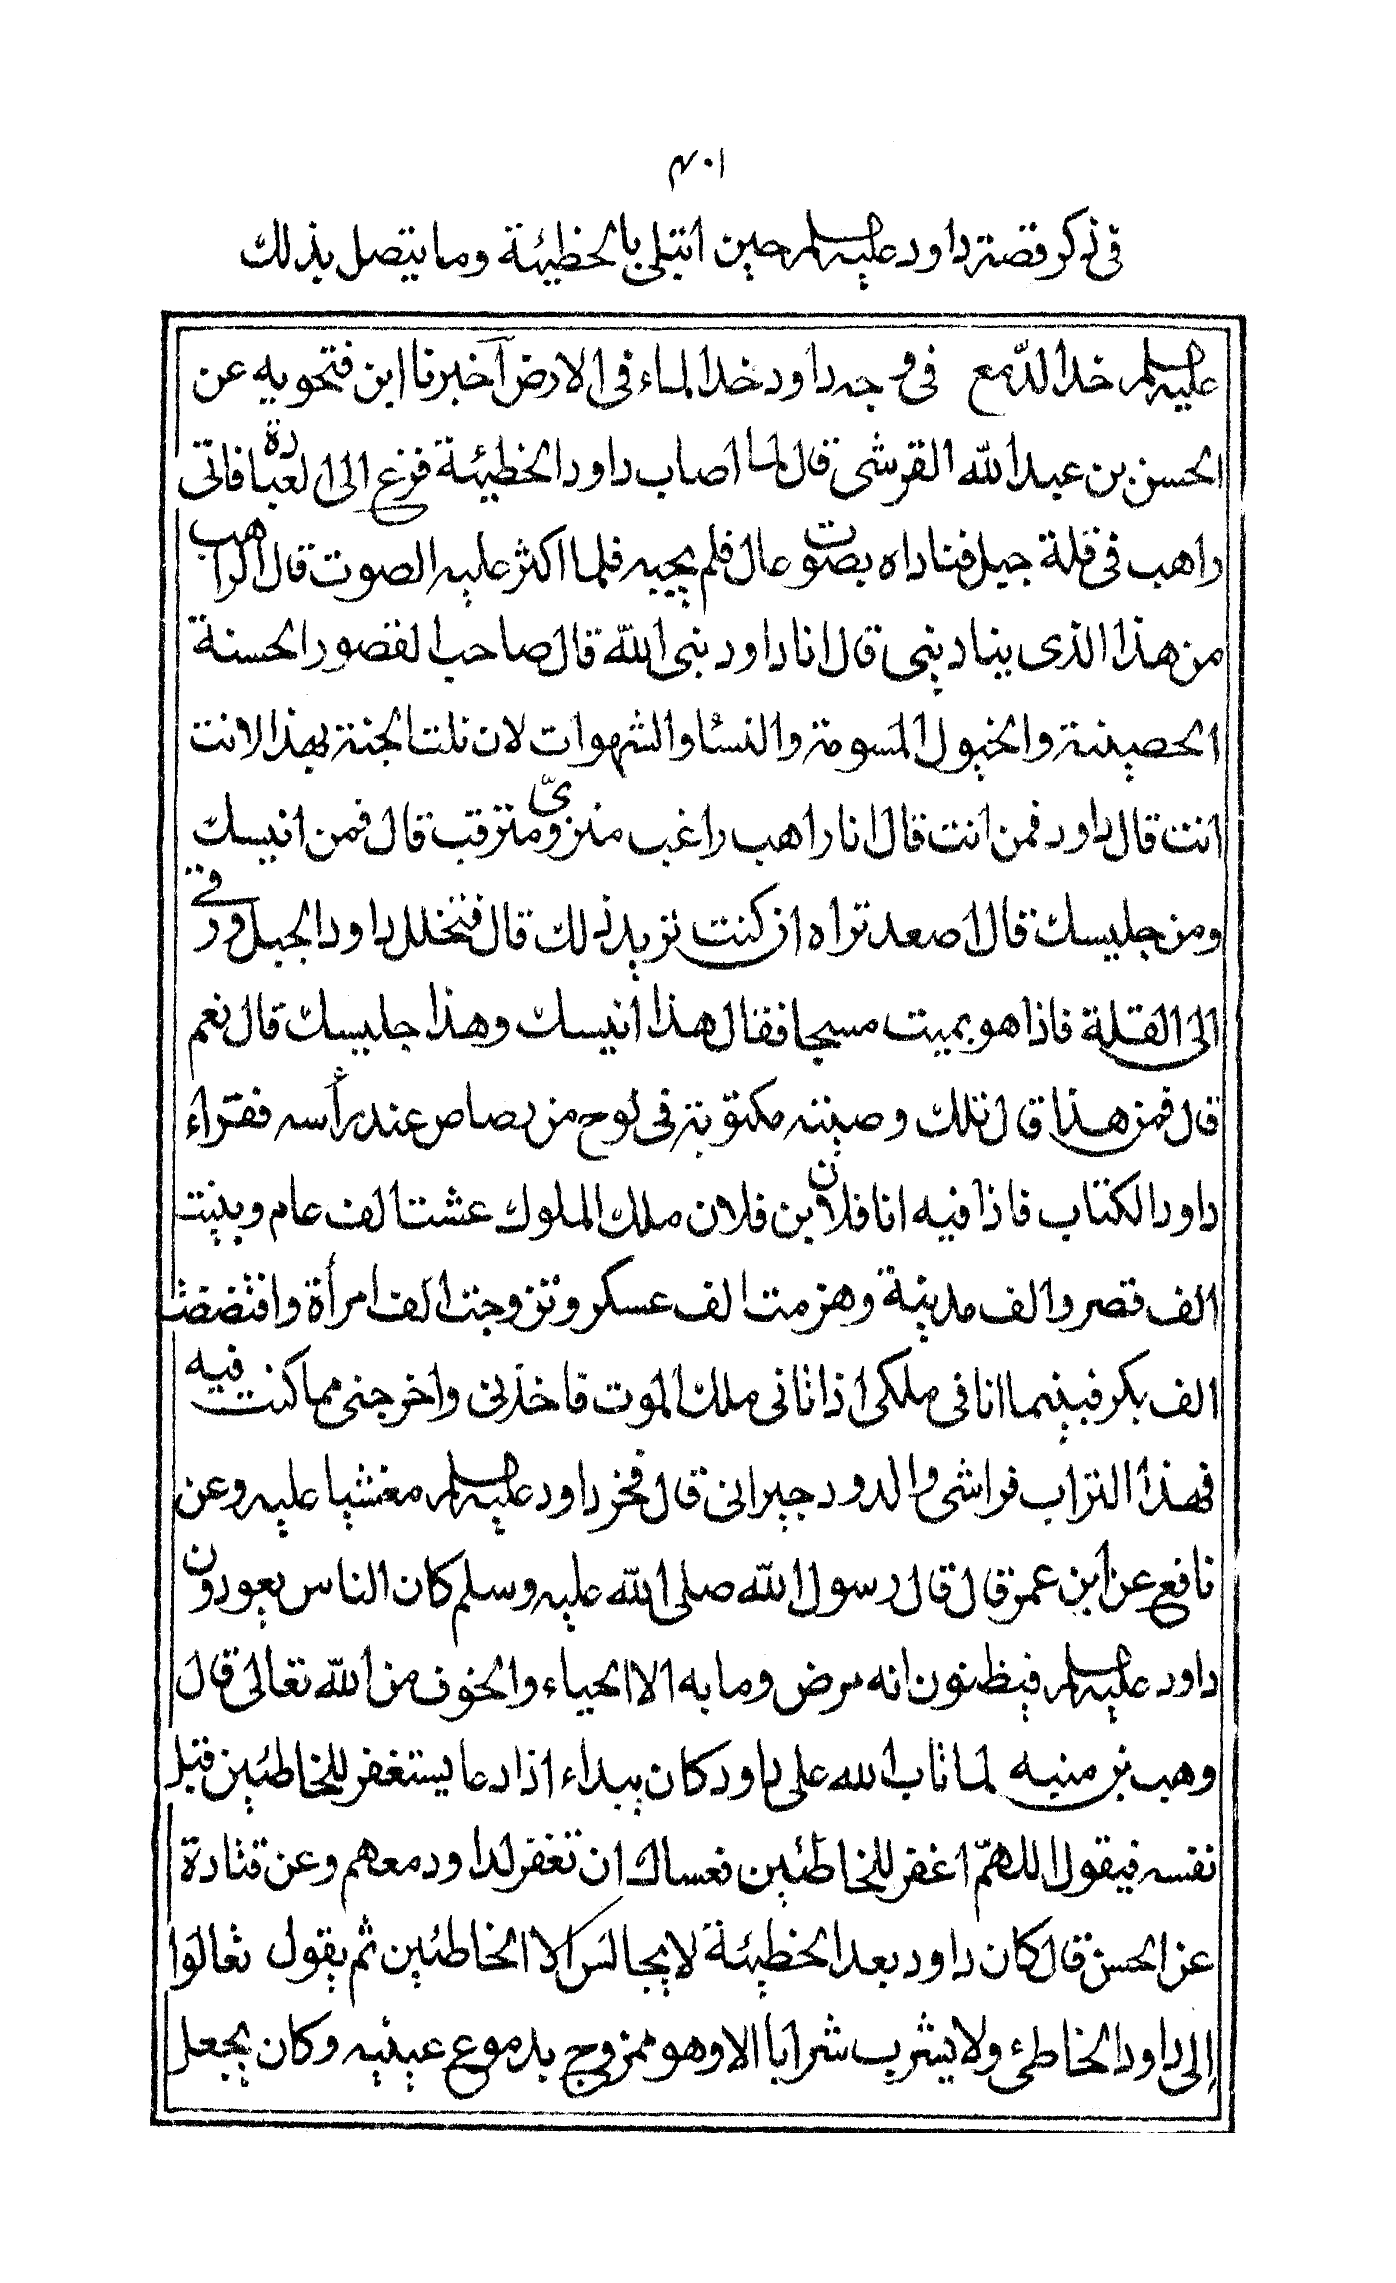 ٤٠١
في ذكر قصة داود عليه السلم حين ابتلي بالخطيئة وما يتصل بذلك
عليه السلم خدا الدّمع في وجه داود خدا الماء في الارض آخبرنا ابن فتحويه عن
الحسن بن عبد الله القرشي قال لما اصاب داود الخطيئة فزع الى العبادة فاتى
راهب في قلة جبل فناداه بصوت عال فلم يجيبه فلما اكثر عليه الصوت قال الراهب
من هذا الذي يناديني قال انا داود نبي الله قال صاحب القصور الحسنة
الحصينة والخيول المسومة والنسا والشهوات لان نلت الجنة بهذا لانت
انت قال داود فمن انت قال انا راهب راغب منزويّ مترقب قال فمن انيسك
ومن جليسك قال اصعد تراه ان كنت تريد ذلك قال فتخلل داود الجبل ورقى
الى القلة فاذا هو بميت مسجا فقال هذا انيسك وهذا جليسك قال نعم
قال فمن هذا قال تلك وصيته مكتوبة في لوح من رصاص عند رأسه فقراء
داود الكتاب فاذا فيه انا فلان بن فلان ملك الملوك عشت الف عام وبنيت
الف قصر والف مدينة وهزمت الف عسكر وتزوجت الف امرأة وافتضضت
الف بكر فبينما انا في ملكي اذ اتاني ملك الموت فاخذني واخرجني مما كنت فيه
فهذا التراب فراشي والدود جيراني قال فخر داود عليه السلم مغشيا عليه وعن
نافع عن ابن عمر قال قال رسول الله صلى الله عليه وسلم كان الناس يعودون
داود عليه السلم فيظنون انه مرض وما به الا الحياء والخوف من الله تعالى قال
وهب بن منبه لما تاب الله على داود كان يبداء اذا دعا يستغفر للخاطئين قبل
نفسه فيقول اللهمّ اغفر للخاطئين فعساك ان تغفر لداود معهم وعن قتادة
عن الحسن قال كان داود بعد الخطيئة لا يجالس الا الخاطئين ثم يقول تعالوا
إلى داود الخاطئ ولا يشرب شرابا الا وهو ممزوج بدموع عينيه وكان يجعل